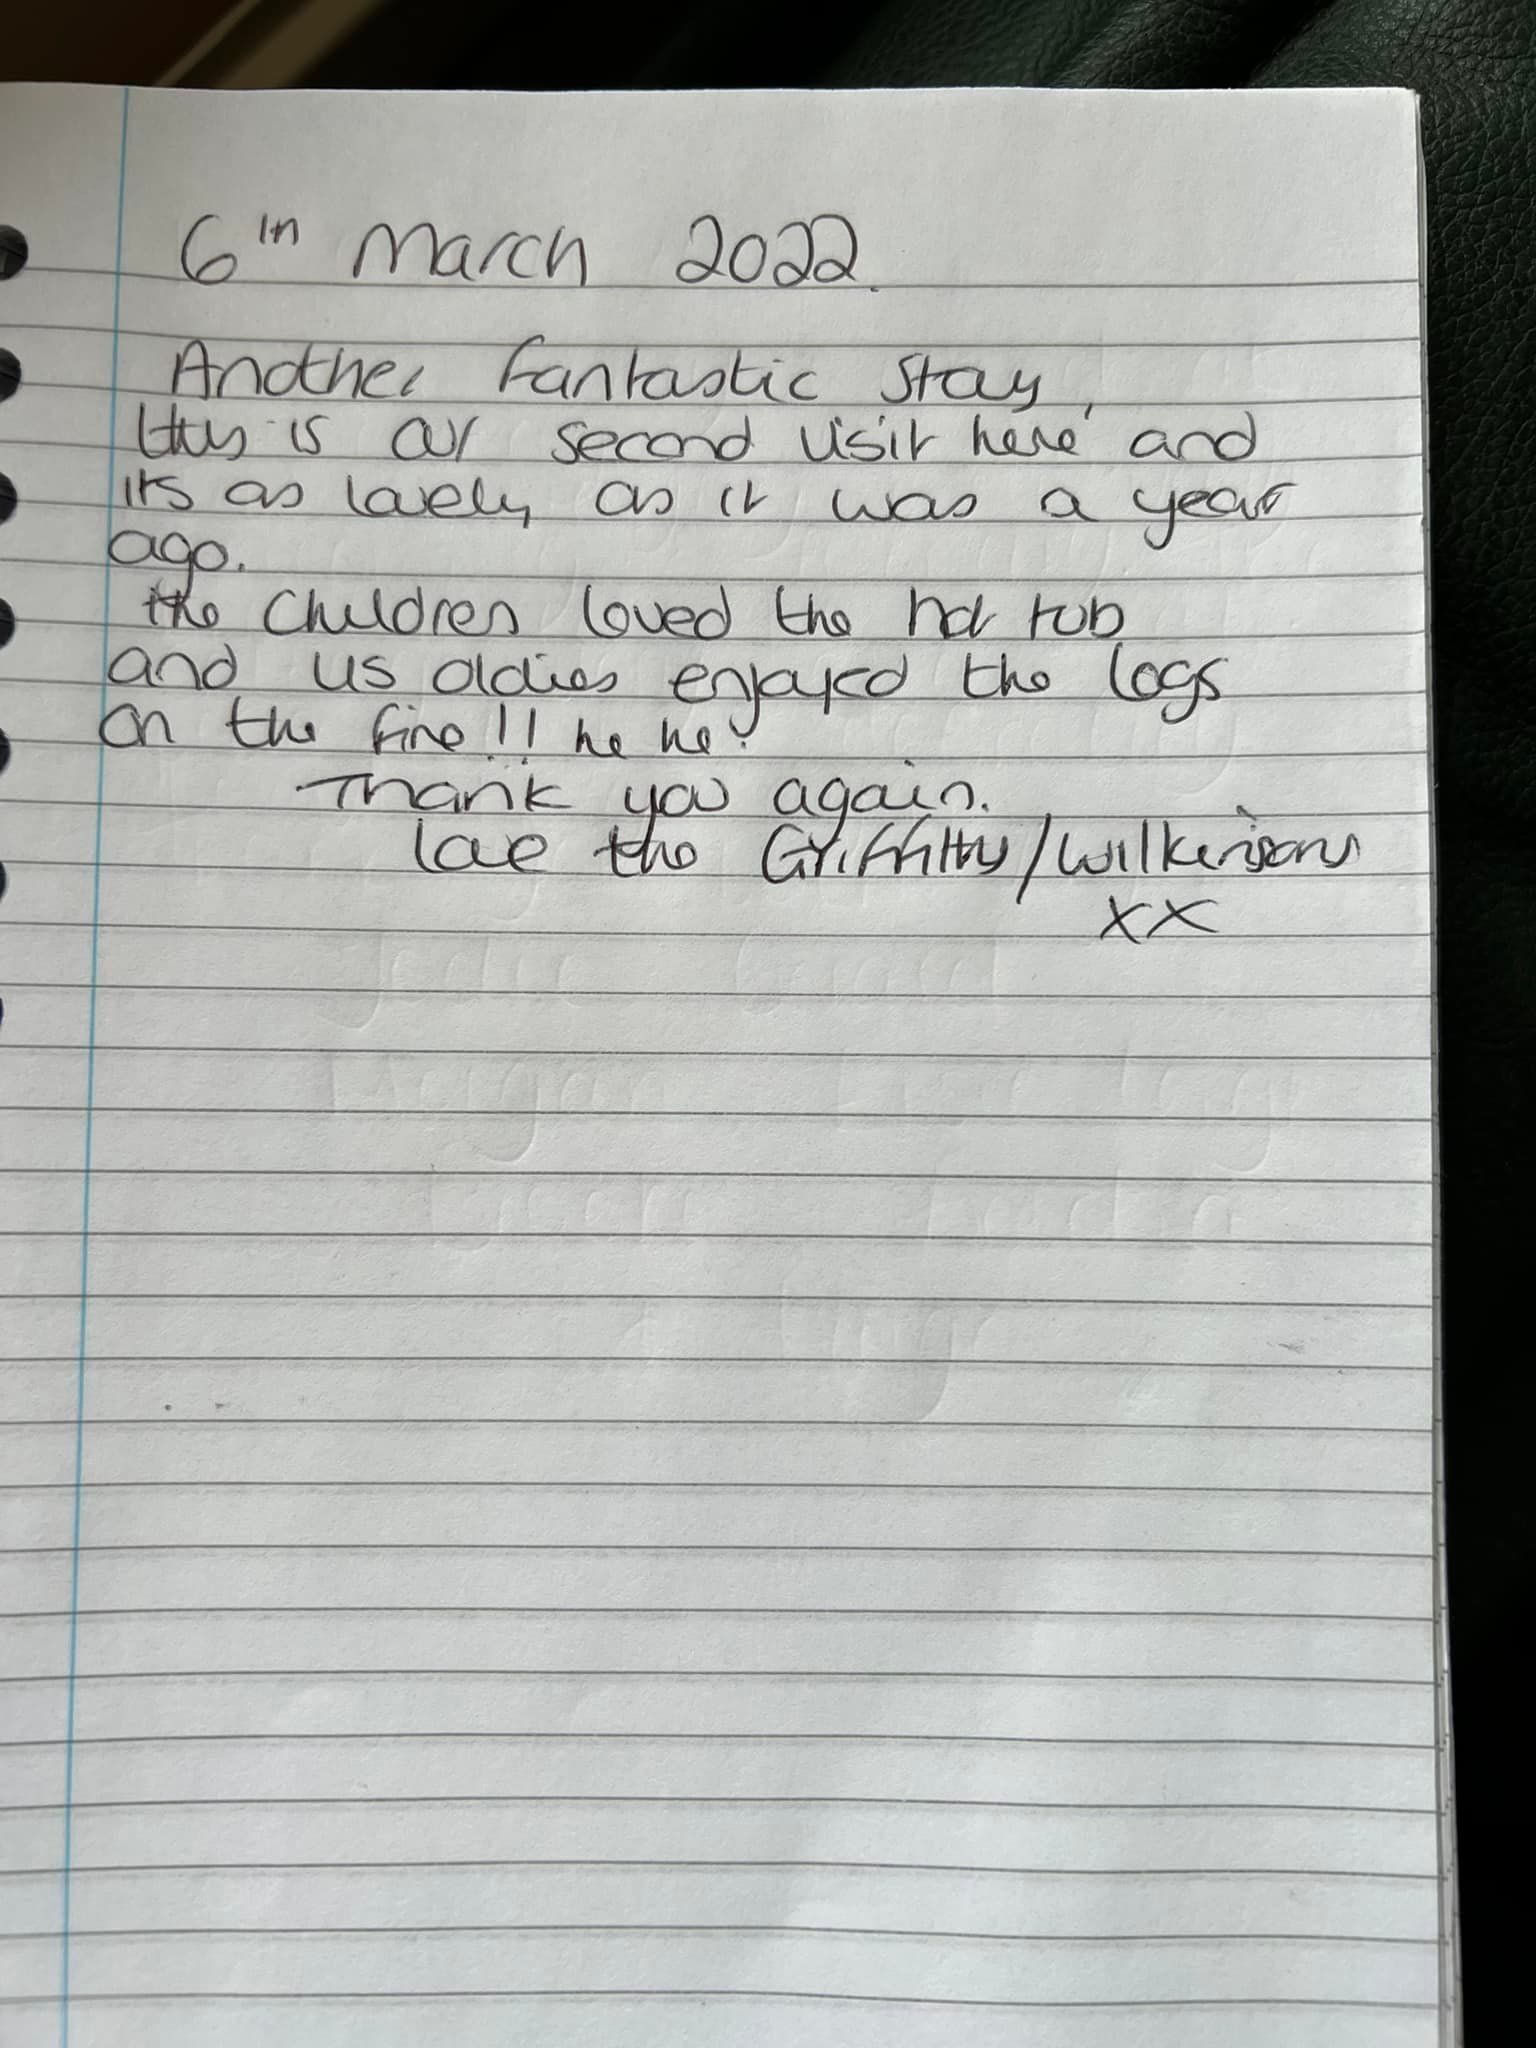 6th March 2022.
Another fantastic stay,
this is our second visit here and
its as lovely as it was a year
ago.
the children loved the hot tub
and us oldies enjoyed the logs
on the fire!! he he.
Thank you again.
love the Griffiths/Wilkinsons
xx